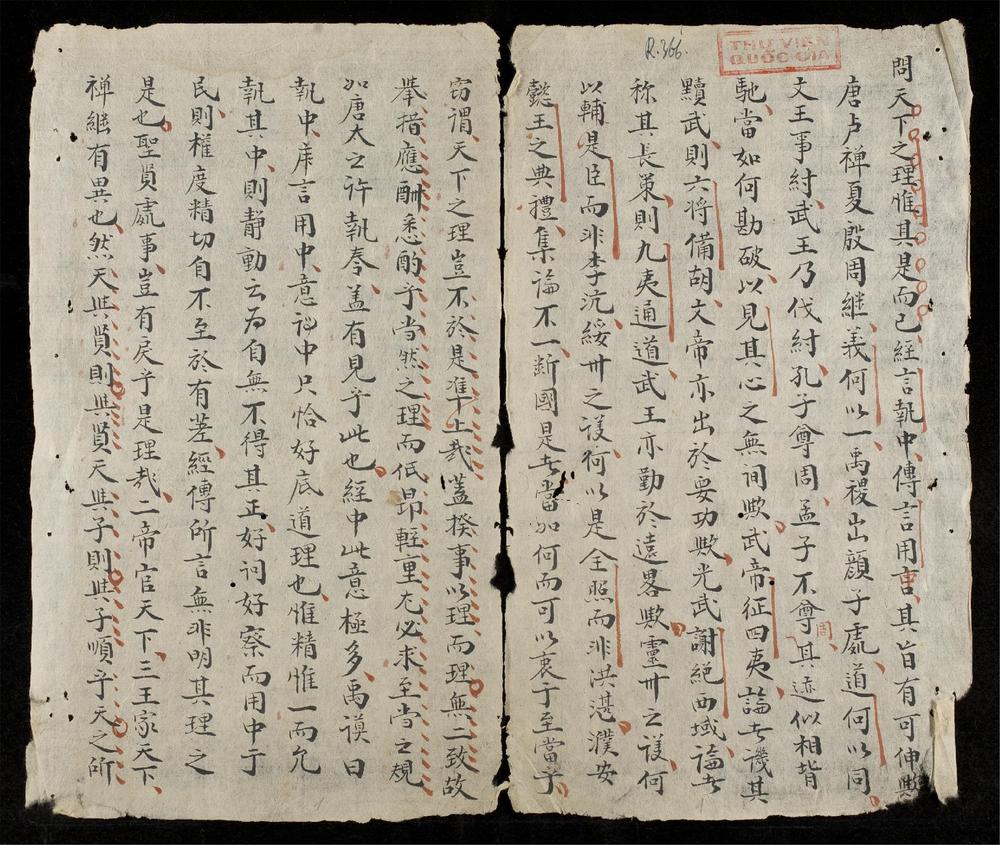 R.366.
THƯ VIỆN
QUỐC GIA
問天下之理惟其是而已經言執中傳言用中其旨有可伸歟
唐卢禅夏殷周継義何以一禹稷出顔子處道何以同
文王事紂武王乃伐紂孔子尊周孟子不尊其迹似相背
周
馳當如何勘破以見其心之無间欤武帝征四夷論者譏其
黷武則六将備胡文帝亦出於要功欤光武謝絕西域論者
称其長策則九夷通道武王亦勤於遠畧欤靈卅之議何
以輔是臣而非李沆綏卅之議何以是全照而非洪湛濮安
懿王之典禮集論不一断國是者當如何而可以衷于至當乎
窃谓天下之理豈不於是凖上哉蓋揆事以理而理無二致故
举措應酬悉酌乎当然之理而低昂軽重尤必求至当之規
如唐太之許執奏盖有見乎此也經中此意極多禹谟曰
執中床言用中意谓中只恰好底道理也惟精惟一而允
執其中則静動云为自無不得其正好问好察而用中于
民則權度精切自不至於有差經傳所言無非明其理之
是也聖賢處事豈有戻乎是理哉二帝官天下三王家天下
禅継有異也然天與賢則與賢天與子則與子順乎天之所